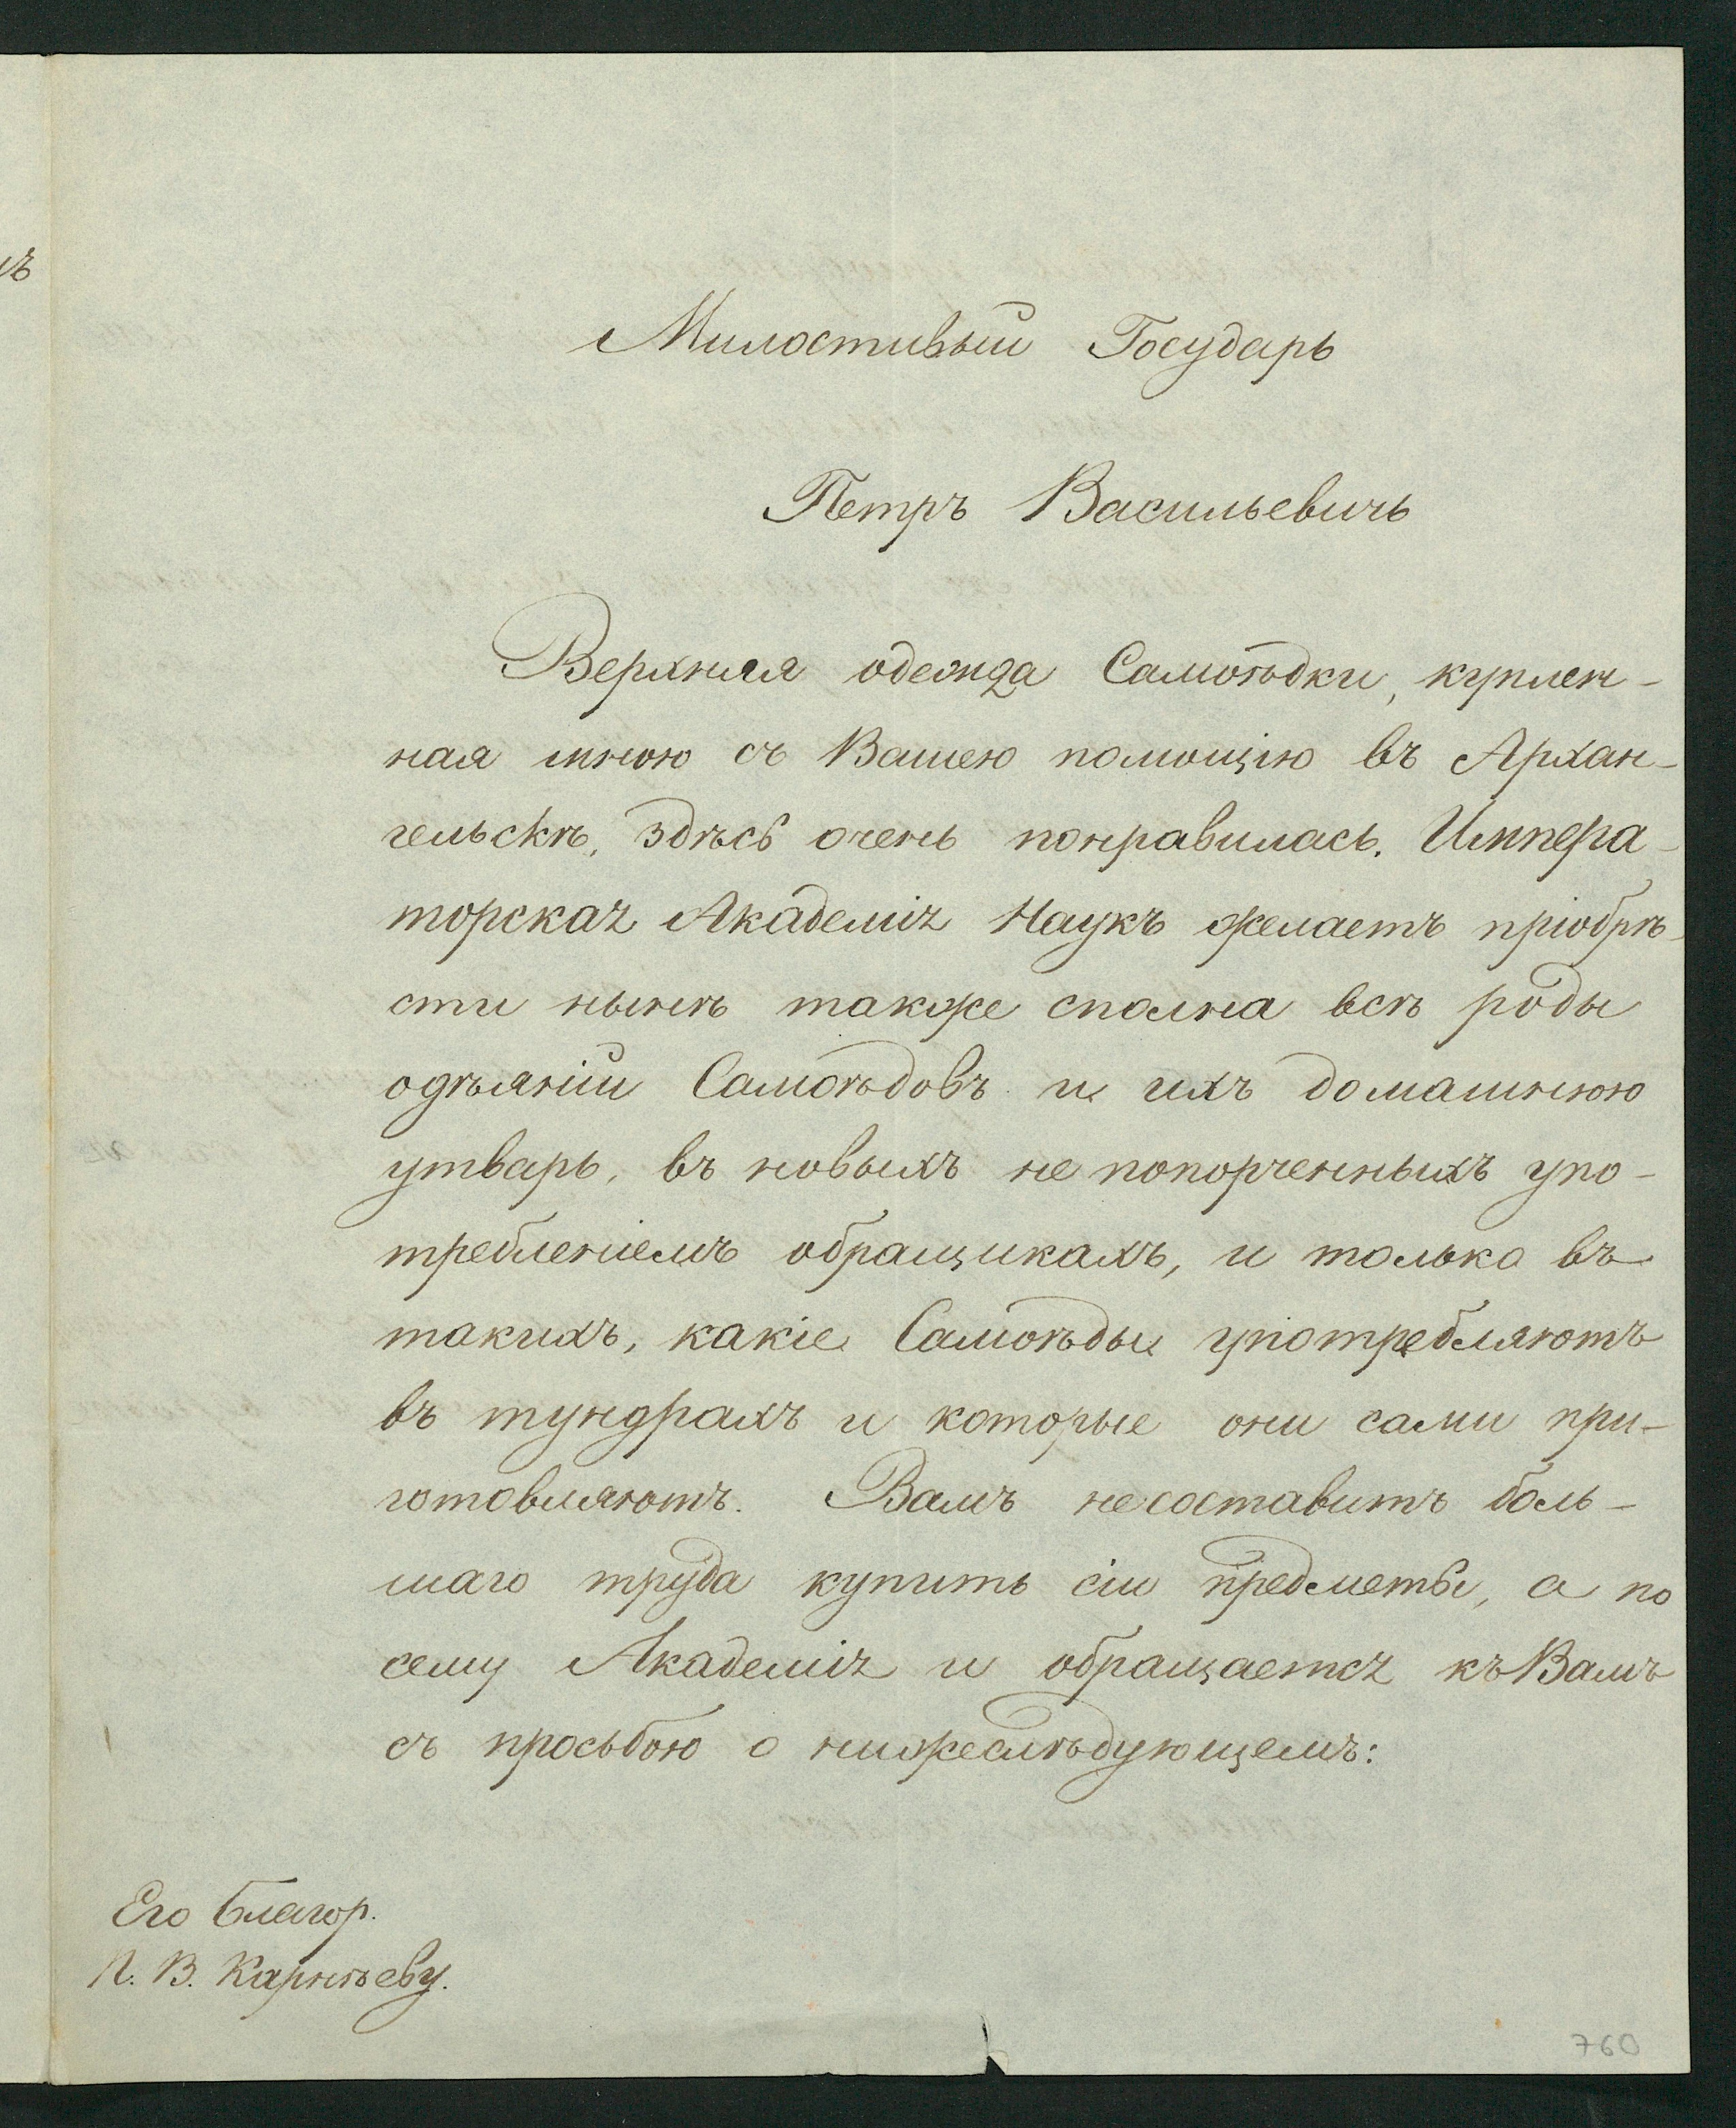 Милостивый Государь
Петръ Васильевичь
Верхняя одежда Самоѣдки, куплен-
ная мною съ Вашею помощію въ Архан-
гельскѣ, здѣсь очень понравилась. Импера-
торская Академія Наукъ желаетъ пріобрѣ-
сти нынѣ также сполна всѣ роды
одѣяній Самоѣдовъ и ихъ домашнюю
утварь, въ новыхъ не попорченныхъ упо-
требленіемъ обращикахъ, и только въ
такихъ, какіе Самоѣды употребляютъ
въ тундрахъ и которые они сами при-
готовляютъ. Вамъ несоставитъ боль-
шаго труда купить сіи предметы, а по
сему Академія и обращается къ Вамъ
съ просьбою о нижеслѣдующемъ:
Его Благор.
П. В. Карнѣеву.
760